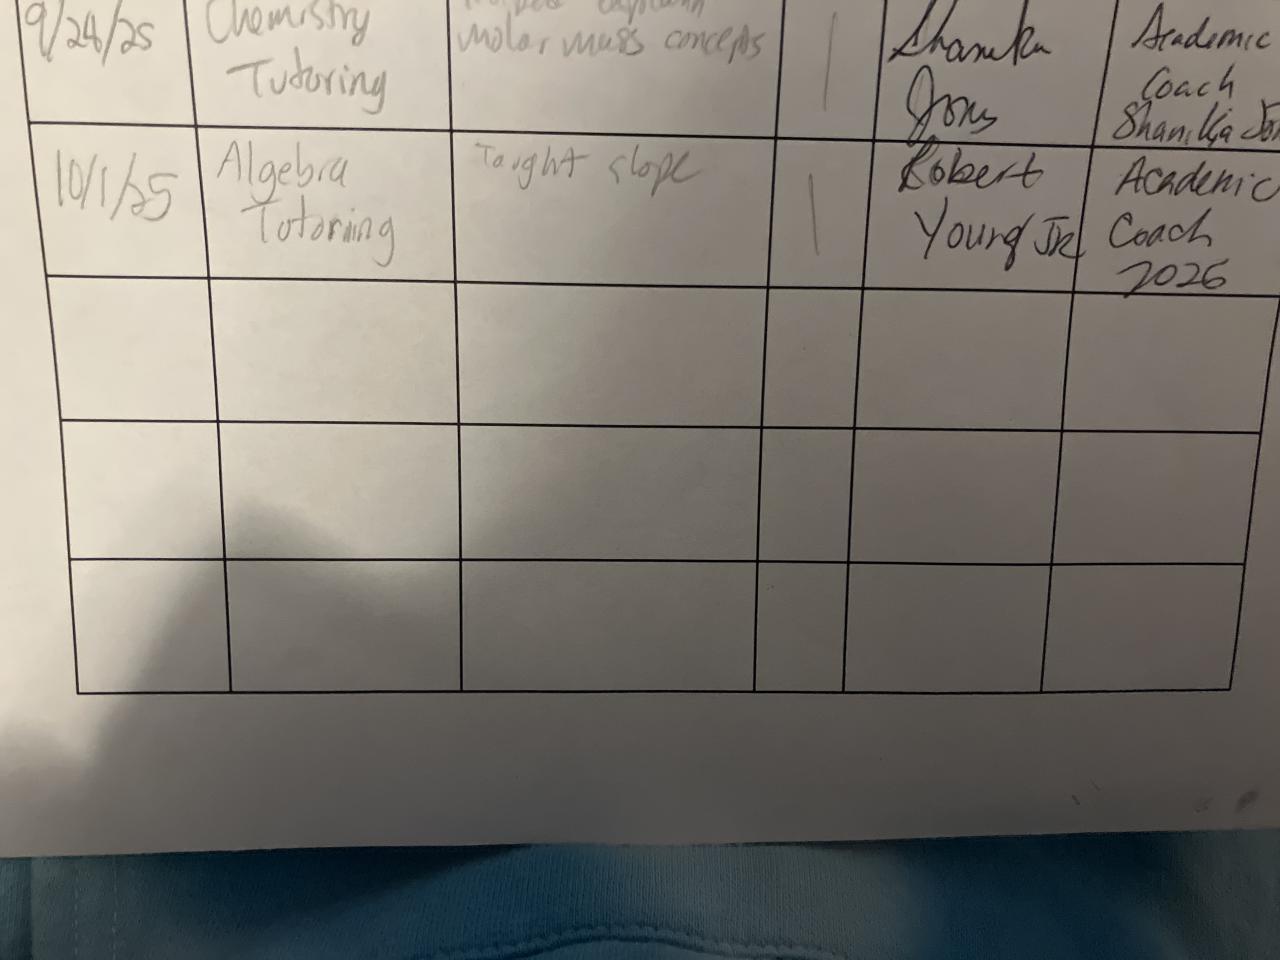 9/24/25
Chemistry
Tutoring
molar mass concepts
1
Shanika
Jones
Academic
Coach
Shanika Jon
10/1/25
Algebra
Tutoring
Taught slope
1
Robert
Young Jr
Academic
Coach
2026